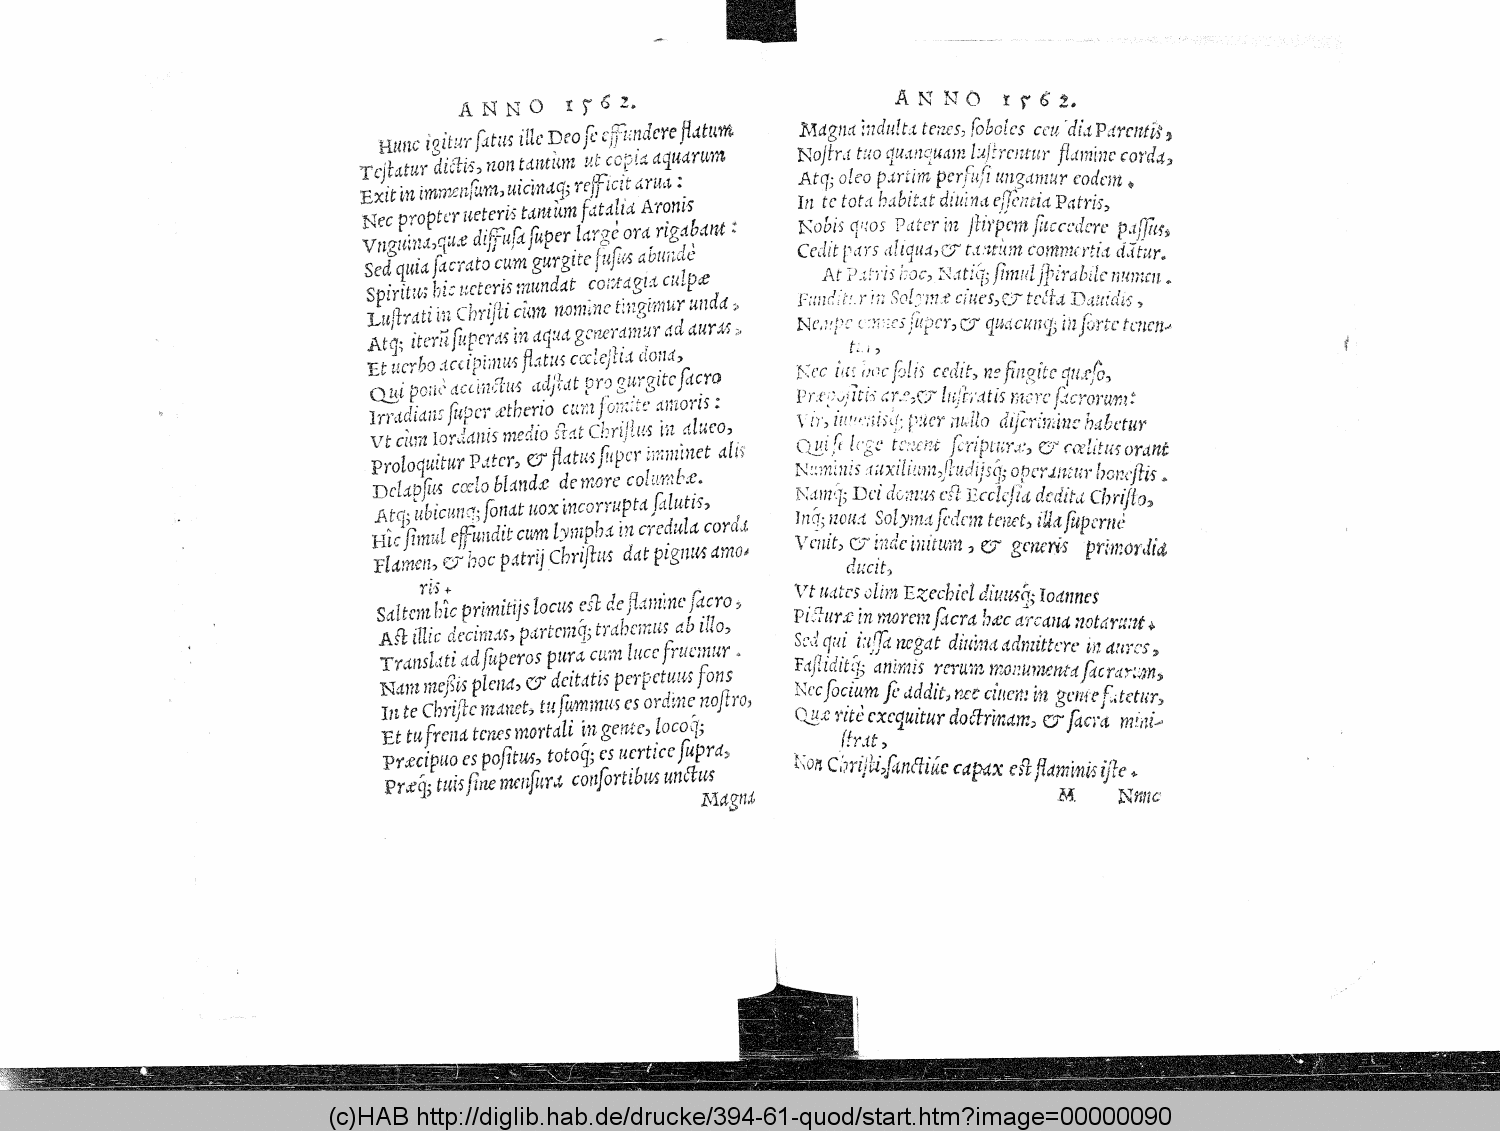 ANNO 1562.
Hunc igitur ſatus ille Deo ſe effundere flatum
Teſtatur dictis, non tantùm ut copia aquarum
Exit in immenſum, uicinaq; refficit arua:
Nec propter ueteris tantùm fatalia Aronis
Vnguina, quæ diffuſa ſuper largè ora rigabant:
Sed quia ſacrato cum gurgite fuſus abundè
Spiritus hic ueteris mundat contagia culpæ
Luſtrati in Chriſti cùm nomine tingimur unda,
Atq; iterũ ſuperas in aqua generamur ad auras,
Et uerbo accipimus flatus cœleſtia dona,
Qui ponè accinctus adſtat pro gurgite ſacro
Irradians ſuper ætherio cum fomite amoris:
Vt cùm Iordanis medio ſtat Chriſtus in alueo,
Proloquitur Pater, & flatus ſuper imminet alis
Delapſus cœlo blandæ de more columbæ.
Atq; ubicunq; ſonat uox incorrupta ſalutis,
Hîc ſimul effundit cum lympha in credula corda
Flamen, & hoc patrij Chriſtus dat pignus amo-
ris.
Saltem hîc primitijs locus eſt de flamine ſacro,
Aſt illic decimas, partemq́; trahemus ab illo,
Translati ad ſuperos pura cum luce fruemur.
Nam meßis plena, & deitatis perpetuus fons
In te Chriſte manet, tu ſummus es ordine noſtro,
Et tu frena tenes mortali in gente, locoq́;
Præcipuo es poſitus, totoq́; es uertice ſupra,
Præq́; tuis ſine menſura conſortibus unctus
Magna
ANNO 1562.
Magna indulta tenes, ſoboles ceu dia Parentis,
Noſtra tuo quanquam luſtrentur flamine corda,
Atq; oleo partim perfuſi ungamur eodem.
In te tota habitat diuina eſſentia Patris,
Nobis quos Pater in ſtirpem ſuccedere paſſus,
Cedit pars aliqua, & tantùm commertia dãtur.
At Patris hoc, Natiq́; ſimul ſpirabile numen.
Funditur in Solymæ ciues, & tecta Dauidis,
Nempe omnes ſuper, & quacunq; in ſorte tenen-
tur,
Nec ius hoc ſolis cedit, ne fingite quæſo,
Præpoſitis aræ, & luſtratis more ſacrorum:
Vir, iuuenisq́; puer nullo diſcrimine habetur
Qui ſe lege tenent ſcripturæ, & cœlitus orant
Numinis auxilium, ſtudijsq́; operantur honeſtis.
Namq́; Dei domus eſt Eccleſia dedita Chriſto,
Inq́; noua Solyma ſedem tenet, illa ſupernè
Venit, & inde initum, & generis primordia
ducit,
Vt uates olim Ezechiel diuusq́; Ioannes
Picturæ in morem ſacra hæc arcana notarunt.
Sed qui iuſſa negat diuina admittere in aures,
Faſtiditq́; animis rerum monumenta ſacrarum,
Nec ſocium ſe addit, nec ciuem in gente fatetur,
Quæ ritè exequitur doctrinam, & ſacra mini-
ſtrat,
Non Chriſti, ſanctiúe capax eſt flaminis iſte.
M Nunc
(c)HAB http://diglib.hab.de/drucke/394-61-quod/start.htm?image=00000090